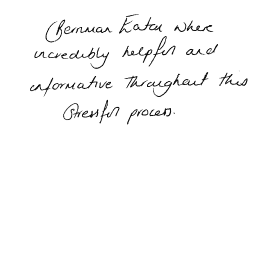 Bernman Eaton where
incredibly helpful and
informative throughout this
stressful process.